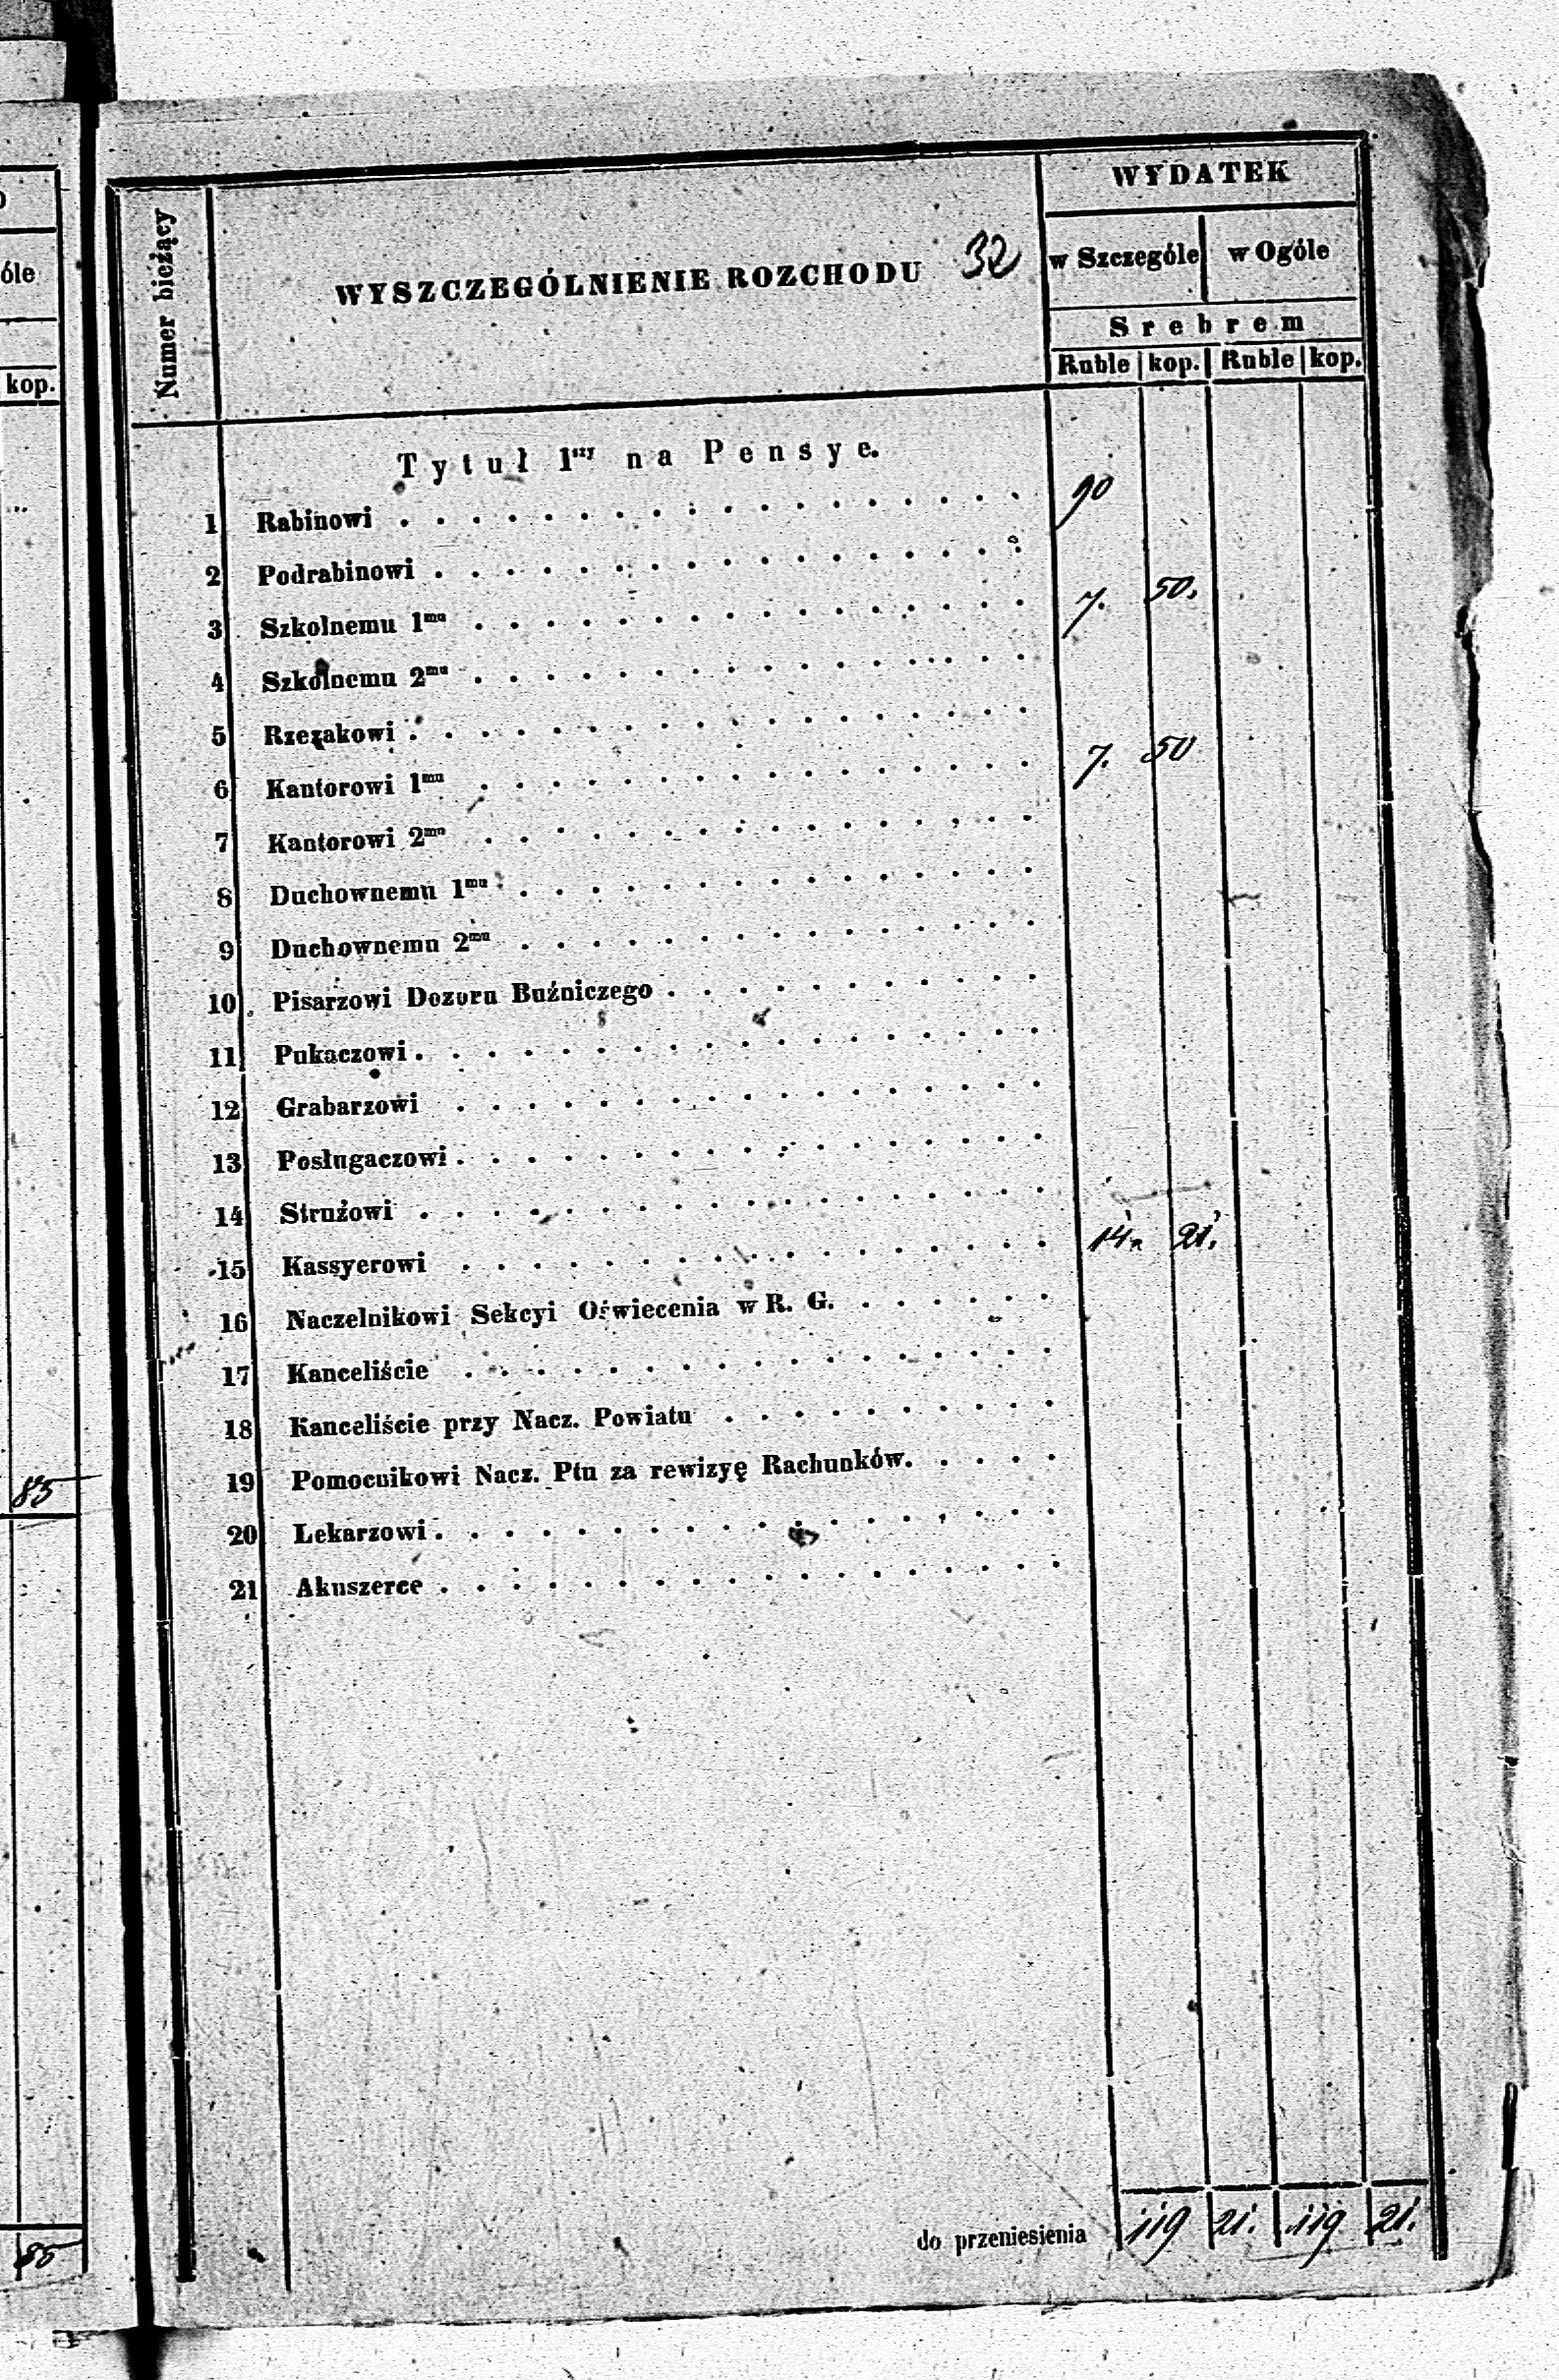 óle
kop.
85
85
Numer bieżący
WYSZCZEGÓLNIENIE ROZCHODU 32
WYDATEK
w Szczególe w Ogóle
Srebrem
Ruble kop. Ruble kop.
Tytuł 1szy na Pensye.
1 Rabinowi 90
2 Podrabinowi
3 Szkolnemu 1mu 7. 50.
4 Szkolnemu 2mu
5 Rzezakowi
6 Kantorowi 1mu 7. 50
7 Kantorowi 2mu
8 Duchownemu 1mu
9 Duchownemu 2mu
10 Pisarzowi Dozoru Buźniczego
11 Pukaczowi
12 Grabarzowi
13 Posługaczowi
14 Stružowi
15 Kassyerowi 14. 21.
16 Naczelnikowi Sekcyi Oświecenia w R. G.
17 Kanceliście
18 Kanceliście przy Nacz. Powiatu
19 Pomocnikowi Nacz. Ptu za rewizyę Rachunków.
20 Lekarzowi
21 Akuszerce
do przeniesienia 119 21. 119 21.